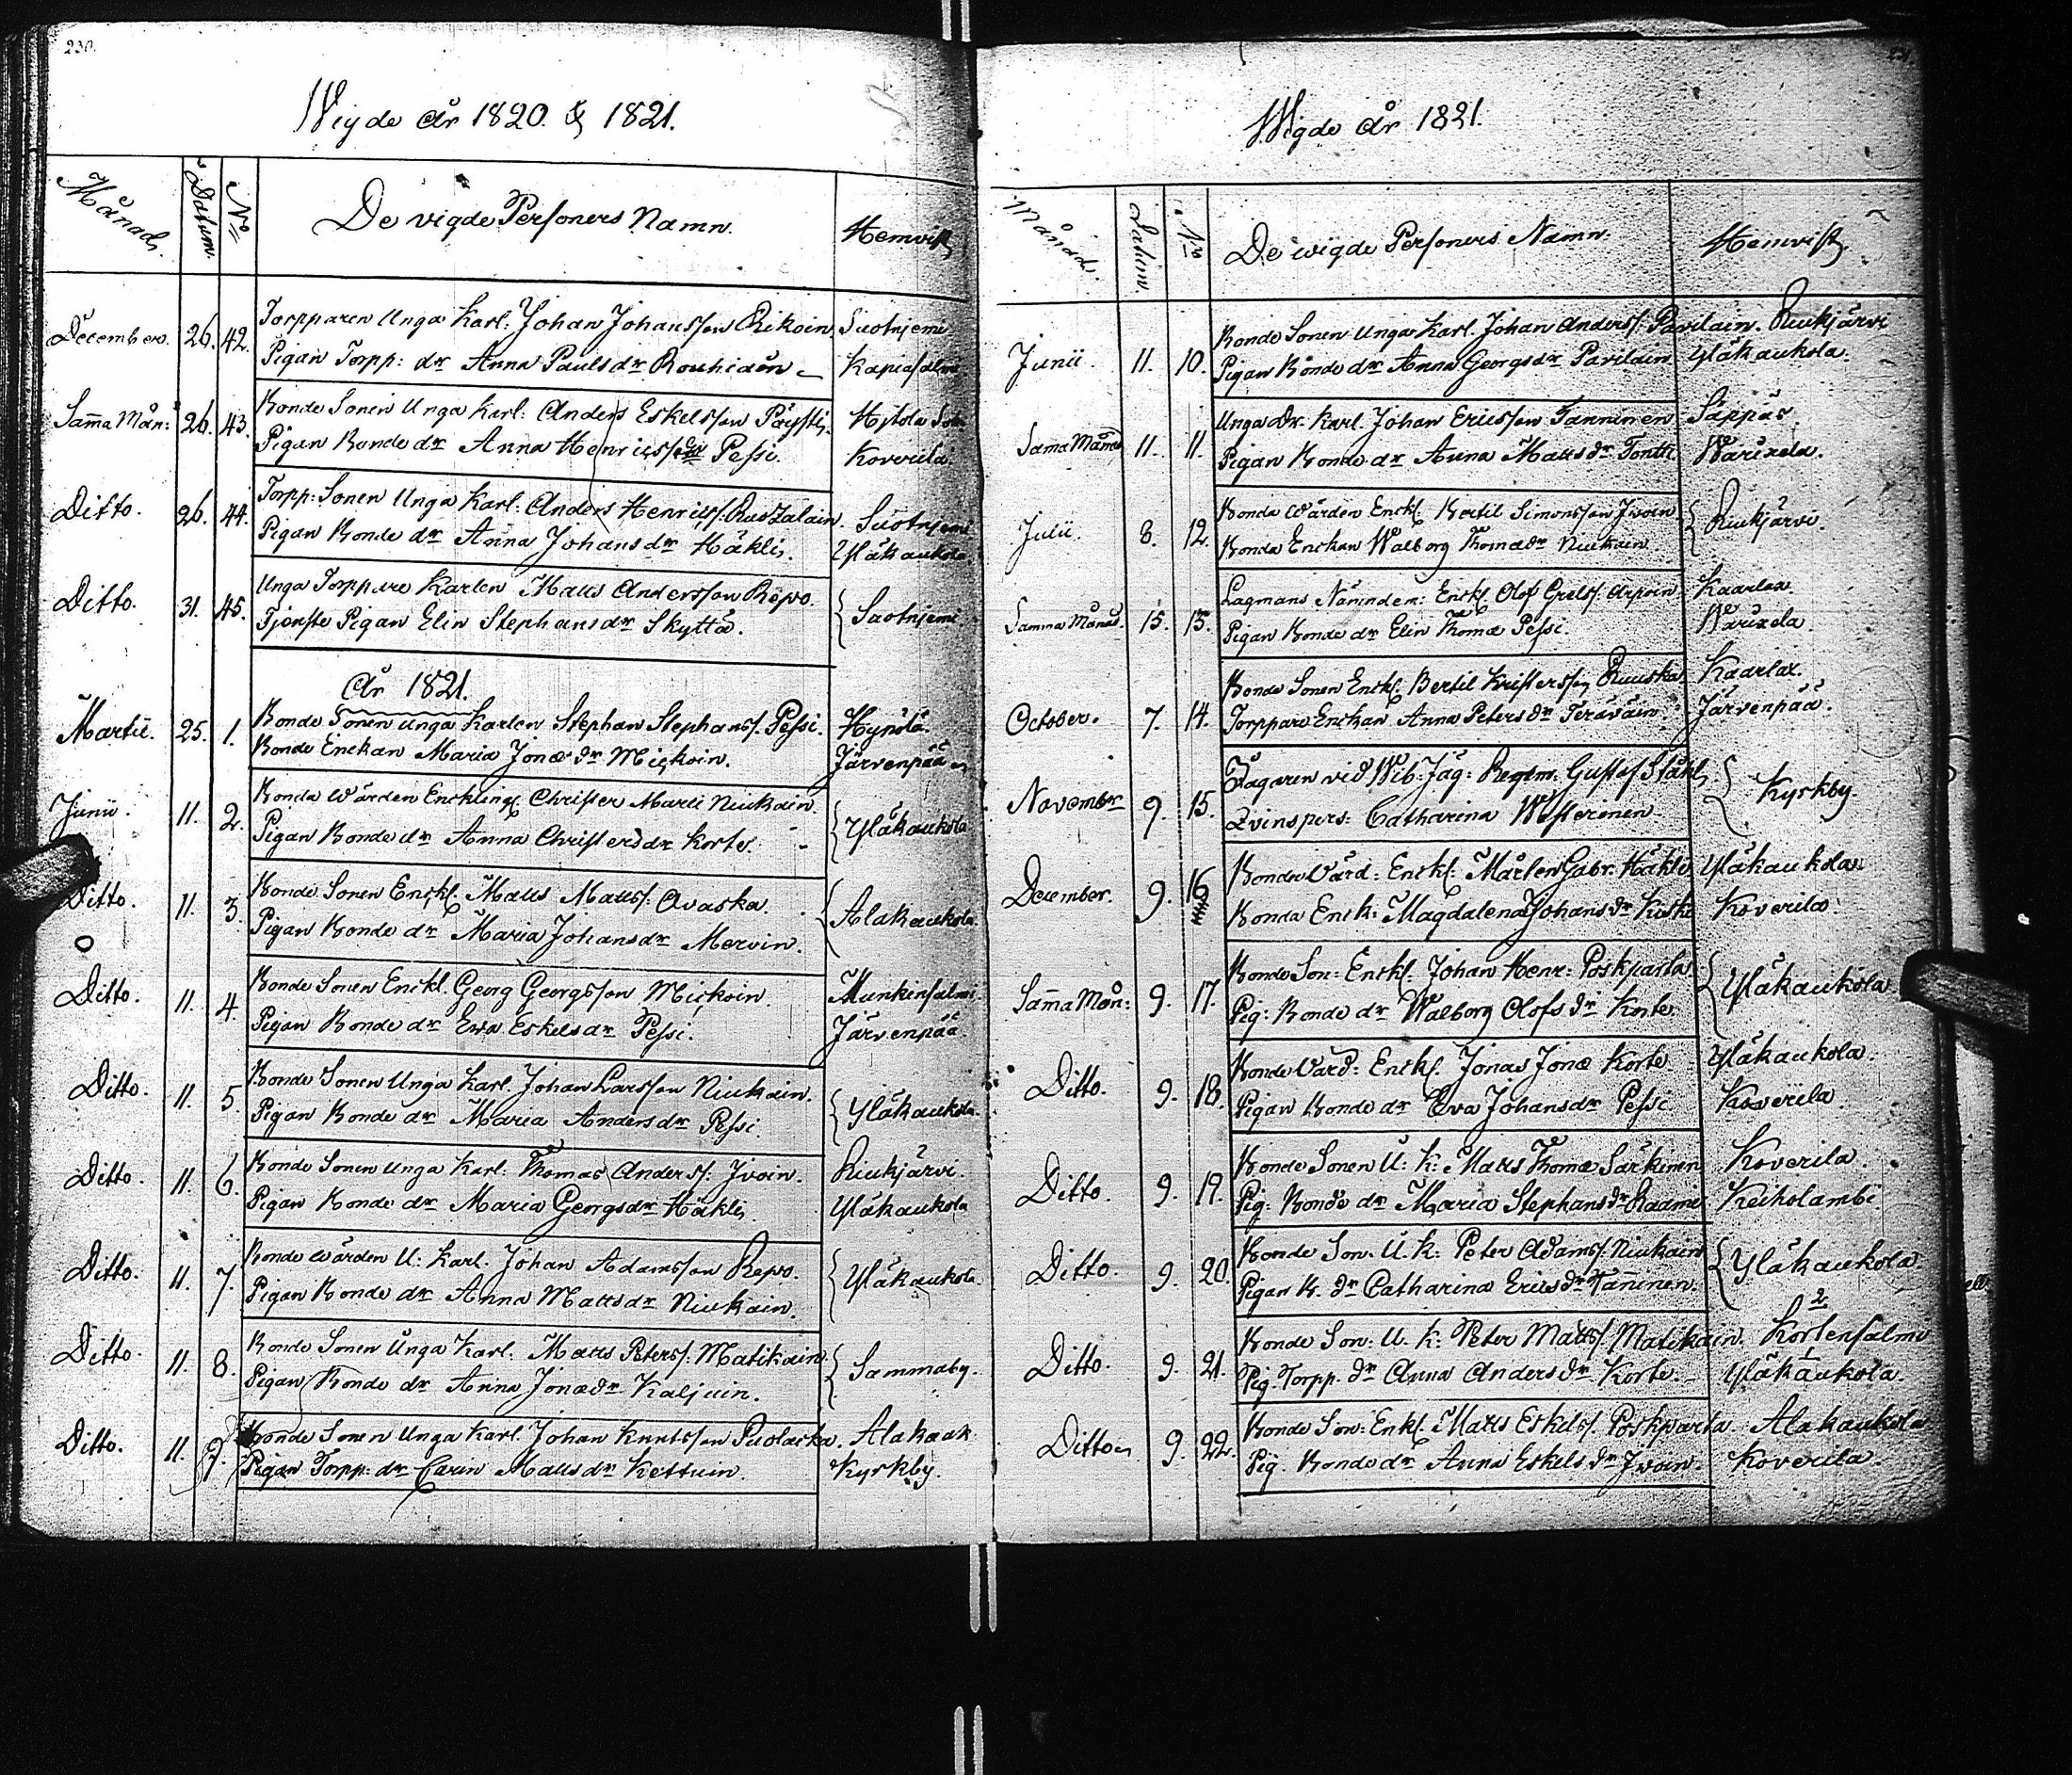 230.
Wigde år 1820. & 1821.
Månad. Datum. No De vigde Personers Namn. Hemvist
December. 26. 42. Torpparen Unga Karl: Johan Johansson Rikoin. Suotnjemi
Pigan Torpp: dr Anna Pauls dr Rouhiain Kapiasalmi
Sama Mån: 26. 43. Bonde Sonen Unga Karl: Anders Eskelsson
Pigan Bonde dr Anna Henrics dr Pessi. Koverila.
Ditto. 26. 44. Torpp: Sonen Unga Karl. Anders Henricss. Suotnjemi
Pigan Bonde dr Anna Johans dr Häkli. Yläkaukola.
Ditto. 31. 45. Unga Torppare Karlen Matts Andersson Repo.
Tjenste Pigan Elin Stephans dr Skyttä. Suotnjemi
År 1821.
Martii. 25. 1. Bonde Sonen unga Karlen Stephan Stephanss. Pessi. Hynölä.
Bonde Enckan Maria Jonæ dr Mickoin. Järvenpää
Junii. 11. 2. Bonda Wärden Enckling Christer Matti Niukain.
Pigan Bonde dr Anna Christers dr Korte. Yläkaukola
Ditto. 11. 3. Bonde Sonen Enckl. Matts Matts: Avaska.
Pigan Bonde dr Maria Johans dr Mervin. Alakaukola
Ditto. 11. 4. Bonde Sonen Enckl. Georg Georgsson Mickoin Munkinsalmi.
Pigan Bonde dr Ewa Eskels dr Pessi. Järvenpää.
Ditto. 11. 5. Bonde Sonen Unga Karl. Johan Larsson Niukain.
Pigan Bonde dr Maria Anders dr Pessi. Yläkaukola
Ditto. 11. 6. Bonde Sonen unga Karl: Thomas Anders: Ivoin. Riukjärvi.
Pigan Bonde dr Maria Georgs dr Häkli. Yläkaukola
Ditto. 11. 7. Bonde Wärden U: Karl. Johan Adamsson Repo.
Pigan Bonde dr Anna Matts dr Niukain. Yläkaukola.
Ditto. 11. 8. Bonde Sonen Unga Karl. Matts Peters: Matikain.
Pigan Bonde dr Anna Jonæ dr Kaljuin. Sammaby.
Ditto. 11. 9. Bonde Sonen Unga Karl. Johan Knutsson Puolacka. Alakauk
Pigan Torpp: dr Carin Matts dr Kettuin. Kyrkby.
Wigde år 1821.
Månad. Datum. No De wigde Personers Namn: Hemvist
Junii. 11. 10. Bonde Sonen Unga Karl. Johan Anders: Pavilain. Riukjärvi
Pigan Bonde dr Anna Georgs dr Pavilain Yläkaukola.
Sama Månad 11. 11. Unga Dr. Karl. Johan Ericsson Tanninen Säppäs
Pigan Bonde dr Anna Matts dr Tontti
Julii. 8. 12. Bonda Wärden Enckl. Bertil Simonsson Ivoin
Bonda Enckan Walborg Thomæ dr Niukain Riukjärvi.
Samma Månad. 15. 13. Lagmans Nämndem: Enckl. Olof Grels: Kaarlax
Pigan Bonde dr Elin Thomæ Pessi.
October. 7. 14. Bonde Sonen Enckl. Bertil Kristersson Ruuska Kaarlax.
Torppare Enckan Anna Peters dr Teräväin Järvenpää.
November 9. 15. Jägaren vid Wib: Jäg: Regem: Gustaf Ståhl.
Qvinspers: Catharina Westerinen Kyrkby
December. 9. 16 Bonden Wärd: Enckl: Mårten Gabr. Häkli Yläkaukola.
Bonda Enck: Magdalena Johans dr Koverila
Sama Mån: 9. 17. Bonde Son: Enckl. Johan Henr: Poskparta.
Pig: Bonde dr Walborg Olofs dr Korte Yläkaukola
Ditto. 9. 18. Bonde Värd: Enckl. Jonas Jonæ Korte Yläkaukola.
Pigan Bonde dr Eva Johans dr Pessi Koverila.
Ditto. 9. 19. Bonde Sonen U: K: Matts Thomæ Särkinen Koverila.
Pig: Bonde dr Maria Stephans dr Raami Keiholambi
Ditto. 9. 20. Bonde Son. U. K: Peter Adams: Niukain
Pigan B. dr Catharina Erics dr Tanninen. Yläkaukola.
Ditto. 9. 21. Bonde Son: U. K: Peter Matts: Matikain. Kortensalmi
Pig. Torpp. dr Anna Anders dr Korte. Yläkaukola.
Ditto 9. 22. Bonde Son: Enkl. Matts Eskels: Poskparta. Alakaukola
Pig. Bonde dr Anna Eskels dr Ivoin. Koverila.